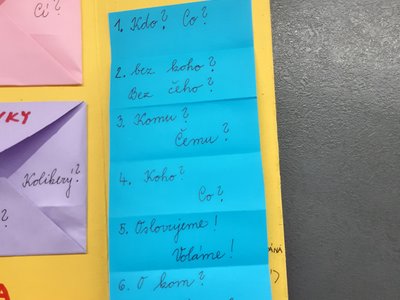 Čí?
VKY
Kolikerý?
?
A
1. Kdo? Co?
2. bez koho?
Bez čeho?
3. Komu?
Čemu?
4. Koho?
Co?
5. Oslovujeme!
Voláme!
6. O kom?
ÁNÁ